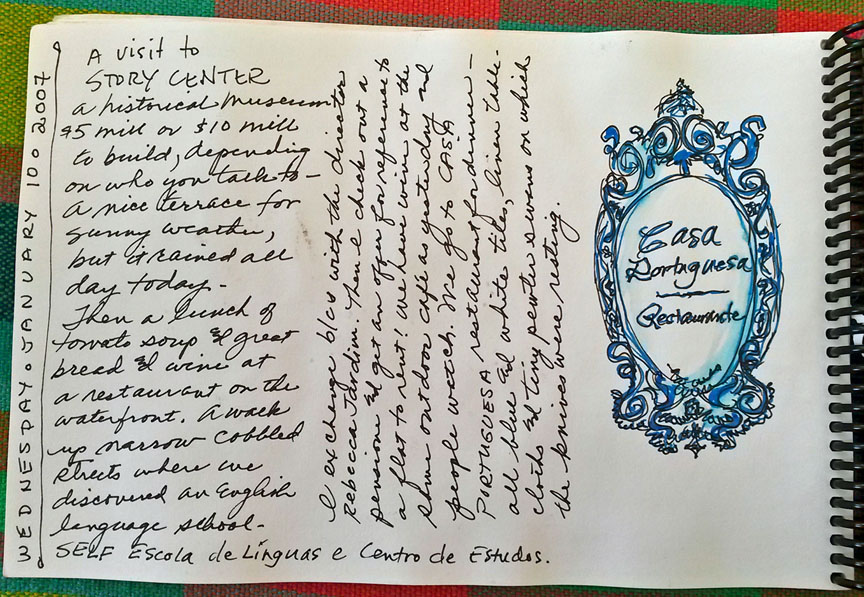 WEDNESDAY • JANUARY 10 • 2007
A visit to
STORY CENTER
a historical museum
$5 mill or $10 mill
to build, depending
on who you talk to –
a nice terrace for
sunny weather,
but it rained all
day today –
Then a lunch of
tomato soup & great
bread & wine at
a restaurant on the
waterfront. A walk
up narrow cobbled
streets where we
discovered an English
language school –
SELF Escola de Línguas e Centro de Estudos.
I exchange b/cs with the director
Rebecca Jardim. Then I check out a
pensione & get an offer for reference to
a flat to rent! We have wine at the
same outdoor café as yesterday and
people watch. We go to CASA
PORTUGUESA restaurant for dinner –
all blue & white tiles, linen table-
cloths & tiny pewter swans on which
the knives were resting.
Casa
Portuguesa
Restaurante